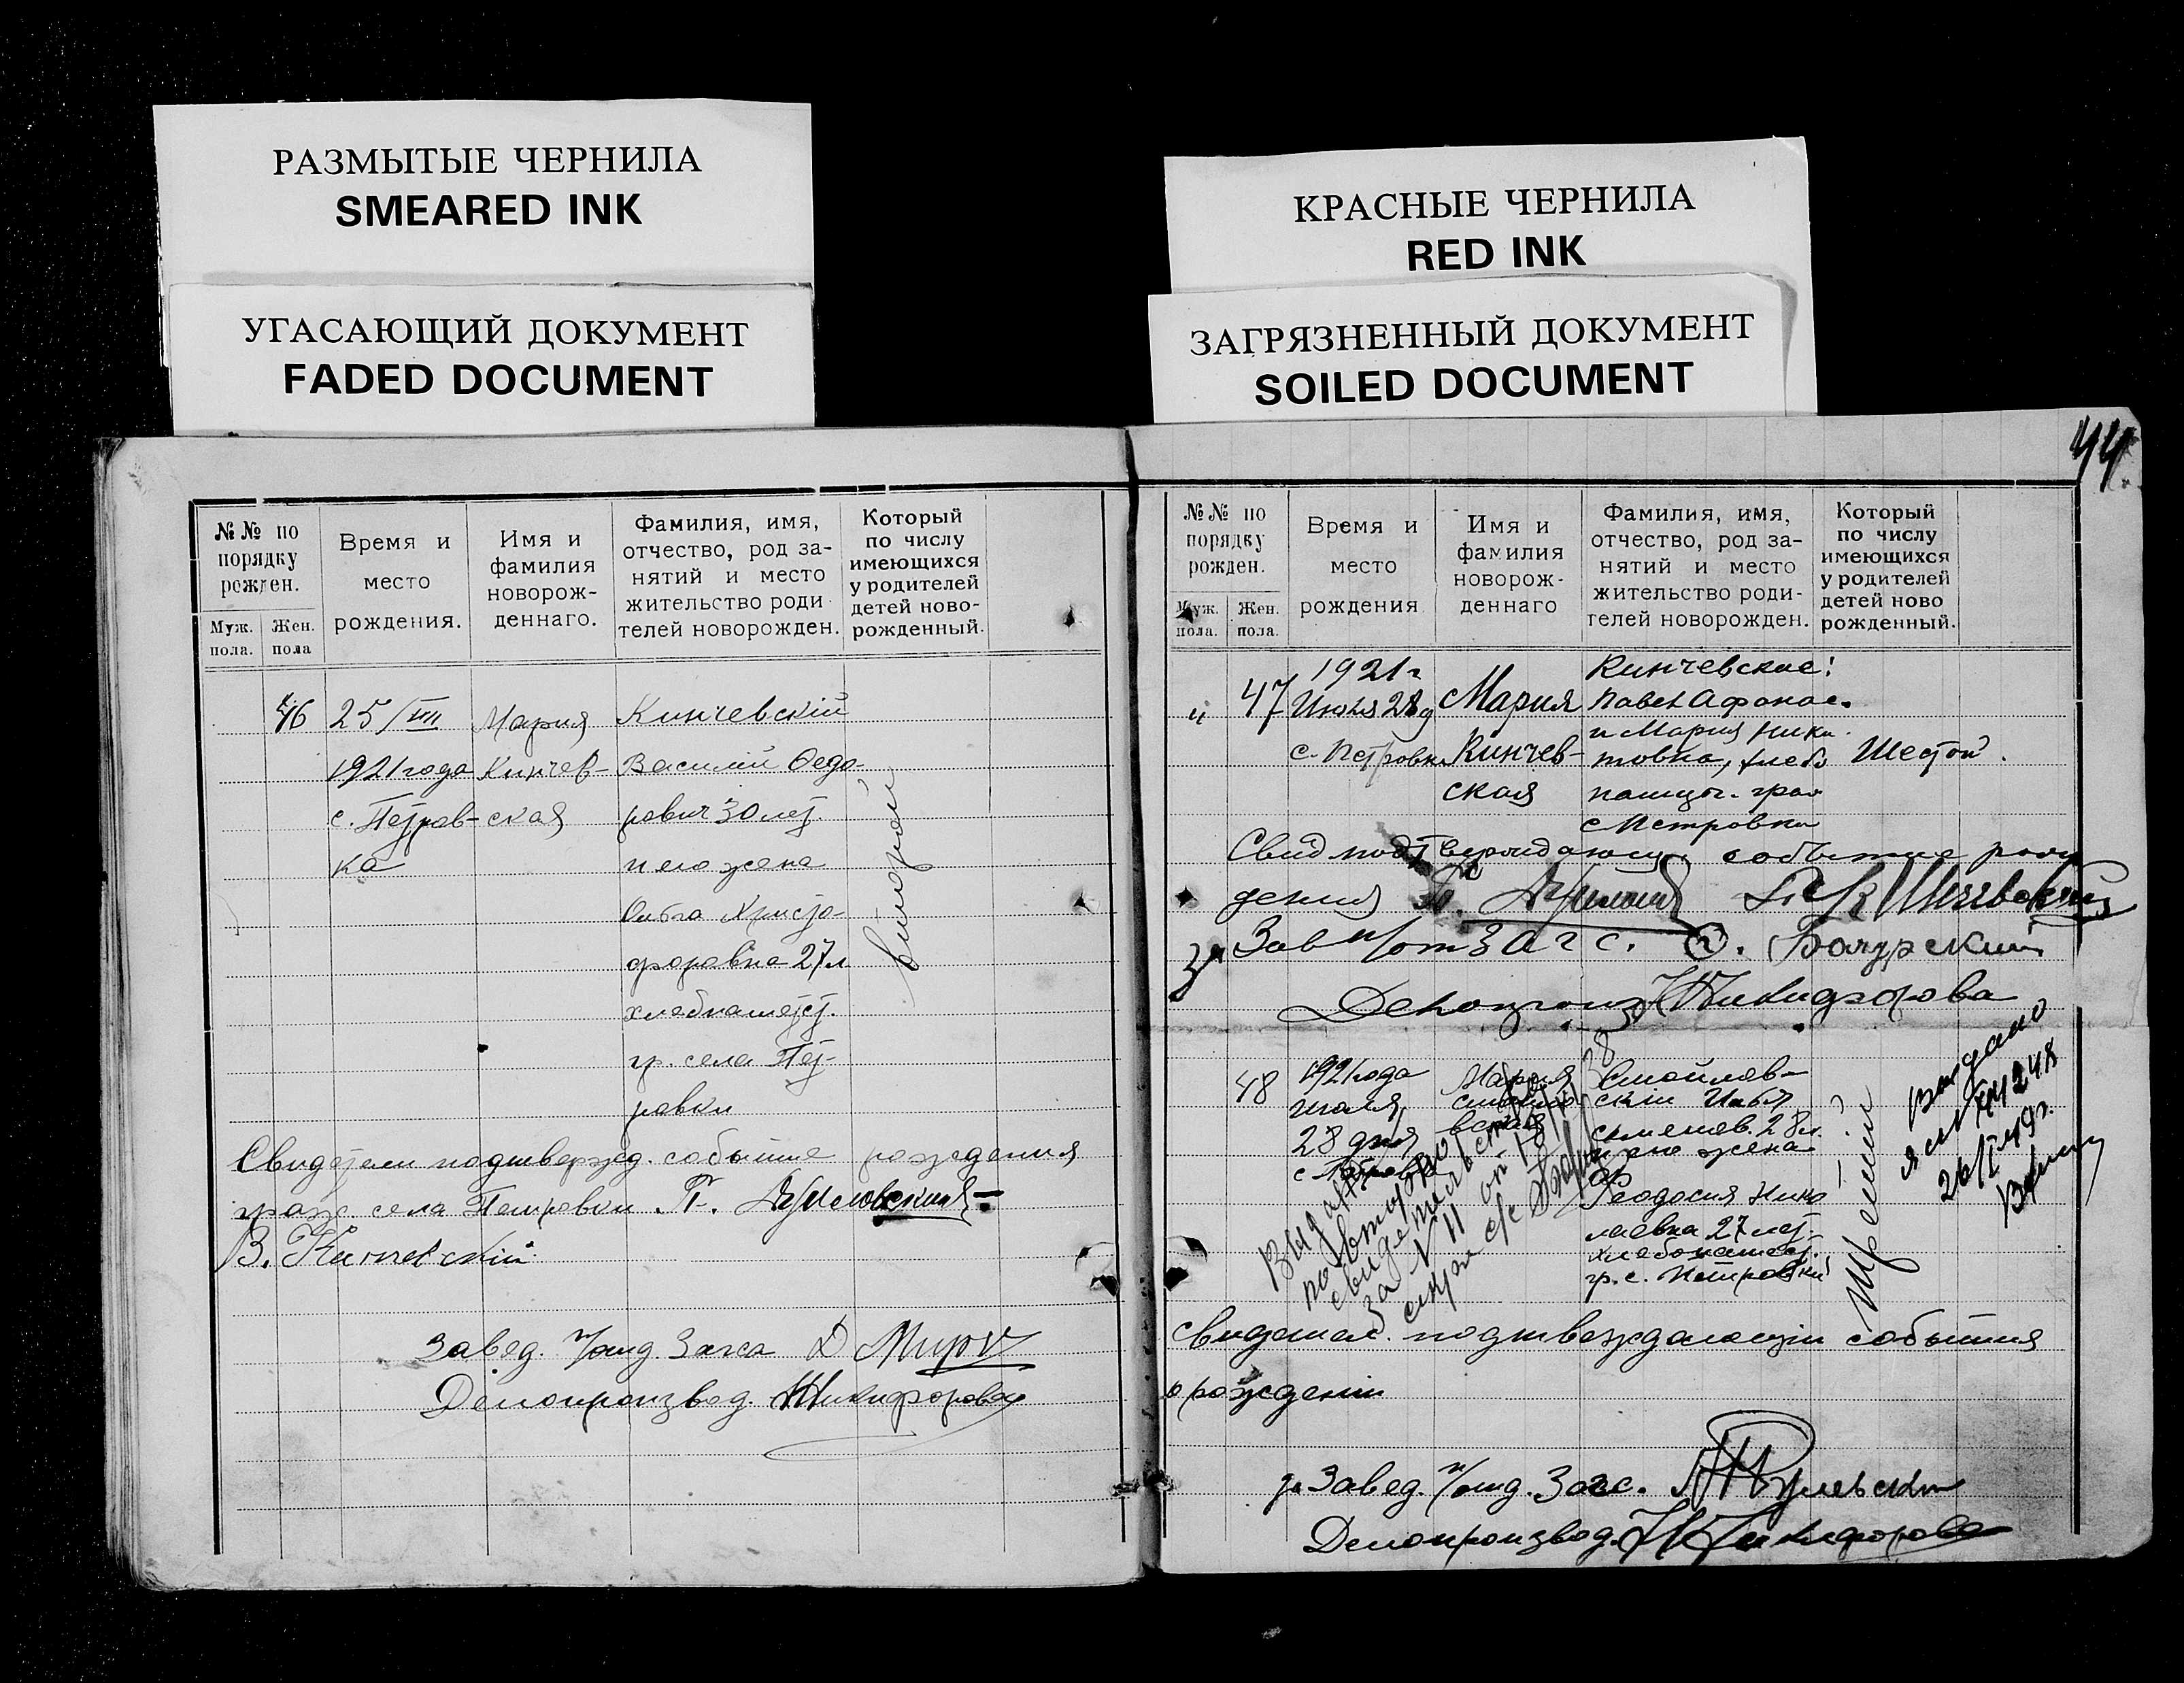 РАЗМЫТЫЕ ЧЕРНИЛА
SMEARED INK
УГАСАЮЩИЙ ДОКУМЕНТ
FADED DOCUMENT
КРАСНЫЕ ЧЕРНИЛА
RED INK
ЗАГРЯЗНЕННЫЙ ДОКУМЕНТ
SOILED DOCUMENT
№№ по
порядку
рожден.
Муж.
пола.
Жен.
пола
Время и
место
рождения.
Имя и
фамилия
новорож-
деннаго.
Фамилия, имя,
отчество, род за-
нятий и место
жительство роди
телей новорожден.
Который
по числу
имеющихся
у родителей
детей ново-
рожденный.
46
25/VII
1921 года
с. Петров-
ка
Мария
Кинчев-
ская
Кинчевскій
Василий Федо-
рович 30 лет.
и его жена
Ольга Христо-
форовна 27 л
хлебопашест.
гр. села Пет-
ровки
второй
Свидетели подтвержд. событие рождения
гражд. села Петровки П.
В. Кинчевский
Завед. п/отд. Загса
Делопроизвод. Никифорова
44.
№№ по
порядку
рожден.
Муж.
пола.
Жен.
пола.
Время и
место
рождения
Имя и
фамилия
новорож-
деннаго
Фамилия, имя,
отчество, род за-
нятий и место
жительство роди-
телей новорожден.
Который
по числу
имеющихся
у родителей
детей ново
рожденный.
"
47
1921 г
Июля 28 д
с. Петровка
Мария
Кинчев-
ская
Кинчевские:
Павел Афанас.
и Мария Ники
товна, хлебо
пашцы. граж
с Петровки
Шестой.
Свид подтверждающ. событие рож
дения
Зав п/от Загс.
Делопроиз Никифорова
48
1921 года
июля
28 дня
с. Петровка
Мария
Смойлов-
скій Илья
28 л.
и его жена
Феодосия Нико
лаевна 27 лет.
хлебопашест.
гр. с. Петровки
Третий
Выдано
повторно
свидетельство
за № 11 от
секр с/с
выдано
26/I 49 г.
Свидетел. подтверждающии события
о рождении
Завед. п/отд. Загс.
Делопроизвод. Никифорова